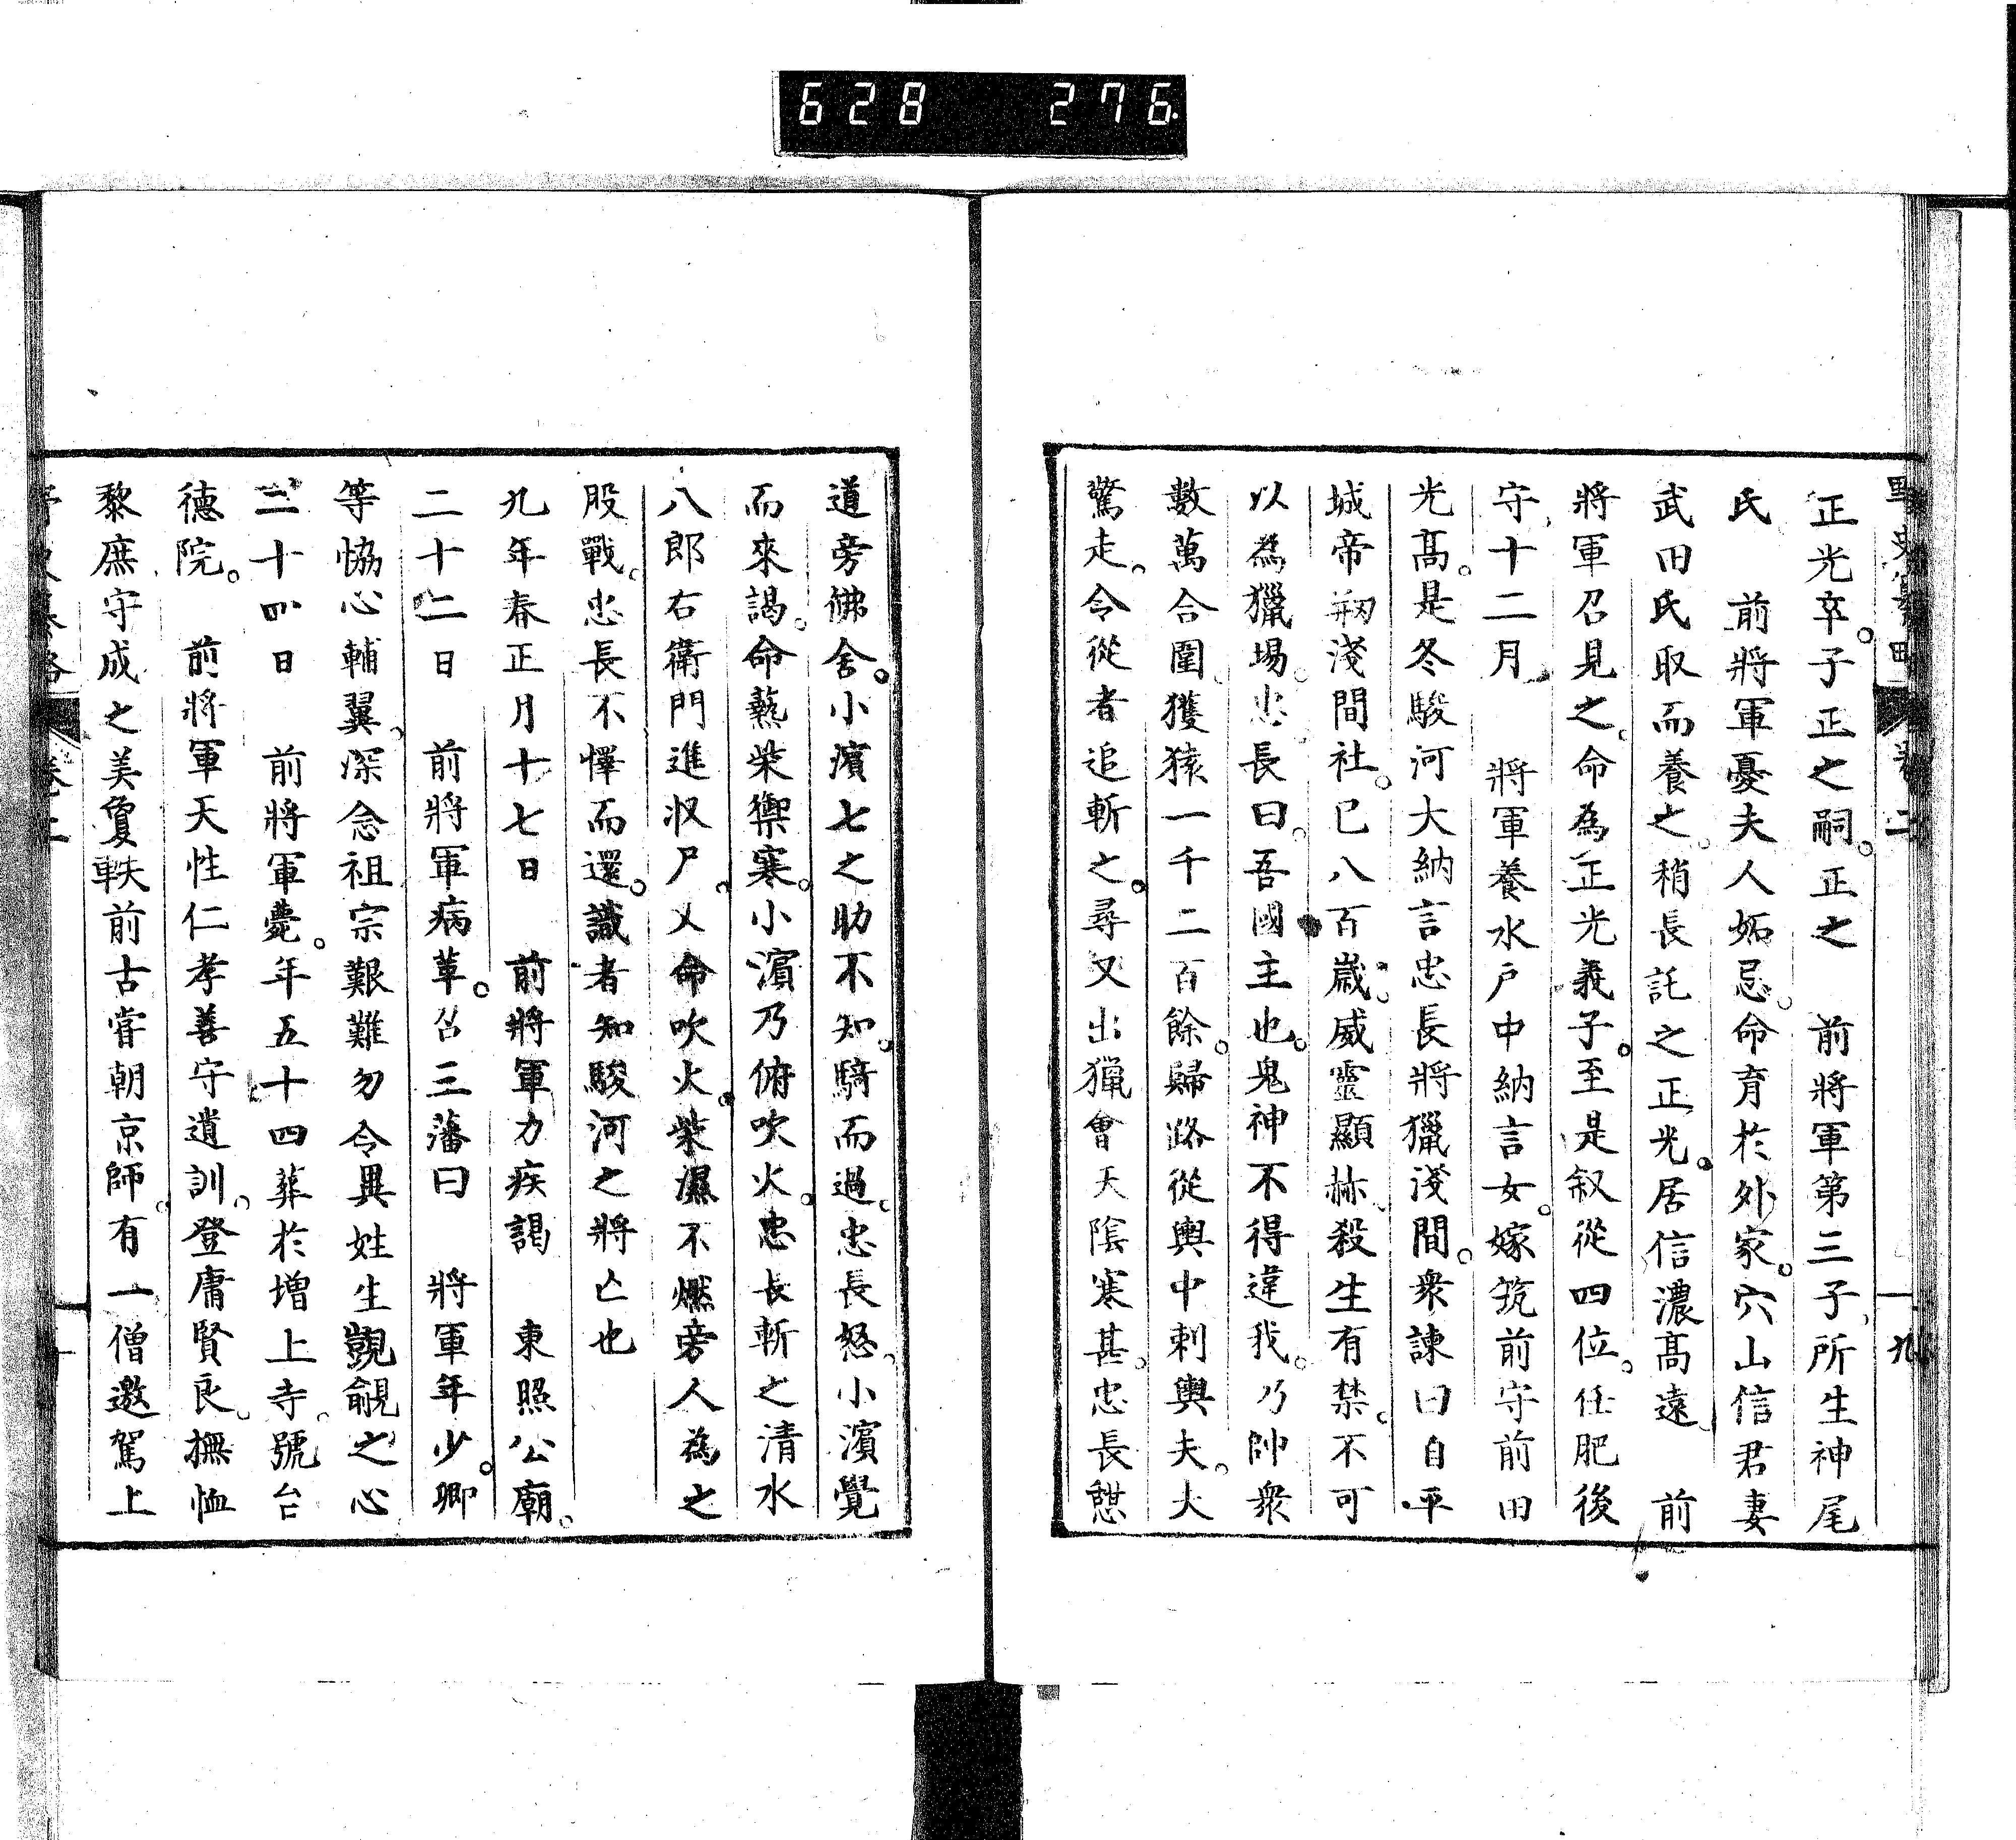 628 276
正光卒子正之嗣正之 前將軍第三子所生神尾
氏 前將軍憂夫人妬忌命育於外家穴山信君妻
武田氏取而養之稍長託之正光居信濃髙遠 前
將軍召見之命為正光義子至是叙從四位任肥後
守十二月 將軍養水戸中納言女嫁筑前守前田
光髙是冬駿河大納言忠長將獵淺間衆諫曰自平
城帝剏淺間社已八百歲威靈顯赫殺生有禁不可
以為獵場忠長曰吾國主也鬼神不得違我乃帥衆
數萬合圍獲猿一千二百餘歸路從輿中刺輿夫大
驚走令從者追斬之尋又出獵會天陰寒甚忠長憩
道旁佛舍小濱七之助不知騎而過忠長怒小濱覺
而來謁命爇柴禦寒小濱乃俯吹火忠長斬之清水
八郎右衛門進收尸乂命吹火柴濕不燃旁人為之
股戰忠長不懌而還識者知駿河之將亡也
九年春正月十七日 前將軍力疾謁 東照公廟
二十二日 前將軍病革召三藩曰 將軍年少卿
等恊心輔翼深念祖宗艱難勿令異姓生覬覦之心
二十四日 前將軍薨年五十四葬於增上寺號台
德院 前將軍天性仁孝善守遺訓登庸賢良撫恤
黎庶守成之美敻軼前古甞朝京師有一僧邀駕上